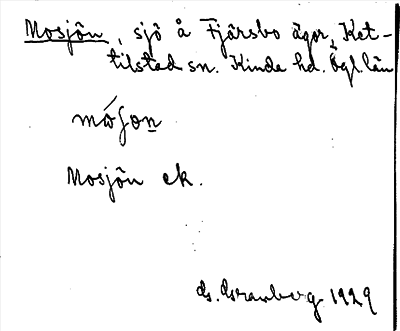 Mosjön, sjö å Fjärsbo ägor, Ket-
tilstad sn. Kinda hd. Ögl län
Mosjön ek.
G. Granberg 1929